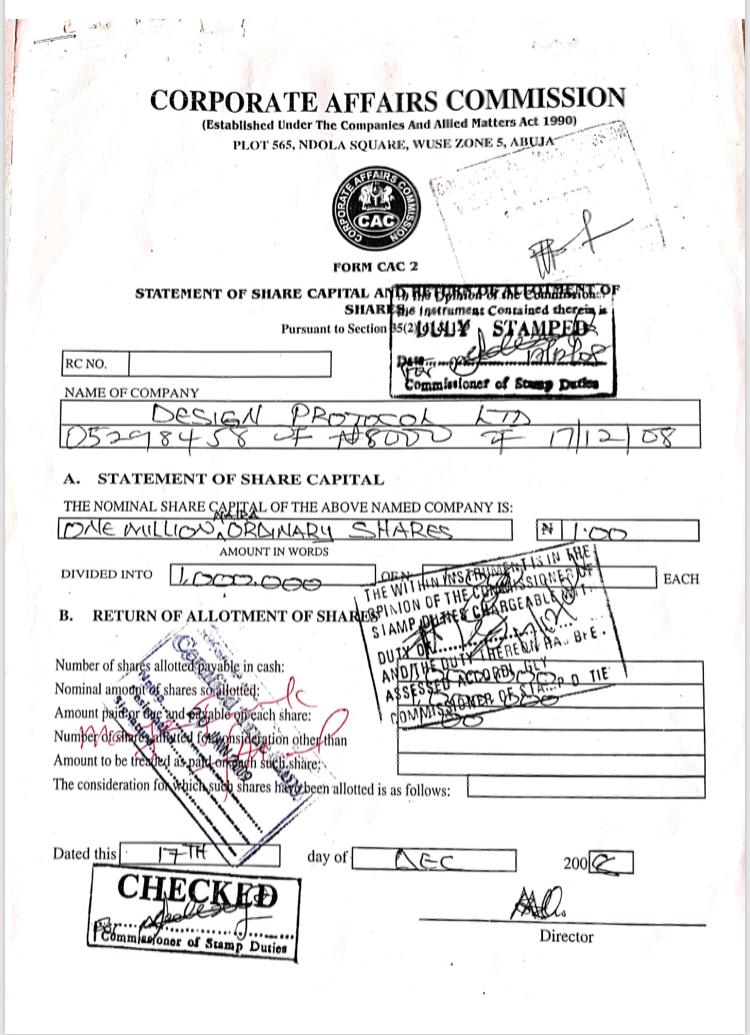 CORPORATE AFFAIRS COMMISSION
(Established Under The Companies And Allied Matters Act 1990)
PLOT 565, NDOLA SQUARE, WUSE ZONE 5, ABUJA
CORPORATE AFFAIRS COMMISSION
CAC
FORM CAC 2
STATEMENT OF SHARE CAPITAL AND RETURN OF ALLOTMENT OF
SHARES
Pursuant to Section 35(2)
In the Opinion of the Commissioner
the Instrument Contained therein is
DULY STAMPED
Date 17/12/08
For
Commissioner of Stamp Duties
RC NO.
NAME OF COMPANY
DESIGN PROTOCOL LTD
05298458 OF ₦8000 OF 17/12/08
A. STATEMENT OF SHARE CAPITAL
THE NOMINAL SHARE CAPITAL OF THE ABOVE NAMED COMPANY IS:
NAIRA
ONE MILLION, ORDINARY SHARES ₦ 1:00
AMOUNT IN WORDS
DIVIDED INTO 1,000.000 EACH
THE WITHIN INSTRUMENT IS IN THE
OPINION OF THE COMMISSIONER OF
STAMP DUTIES CHARGEABLE WIT
DUTY OF
AND THE DUTY THEREON HA
ASSESSED ACCORDI GLY
COMMISSIONER OF STA P D TIE
B. RETURN OF ALLOTMENT OF SHARES
Number of shares allotted payable in cash:
Nominal amount of shares so allotted:
Amount paid or due and payable on each share:
Number of shares allotted for consideration other than
Amount to be treated as paid on each such share:
The consideration for which such shares have been allotted is as follows:
2009
Dated this 17TH day of DEC 2008
CHECKED
Commissioner of Stamp Duties
Director